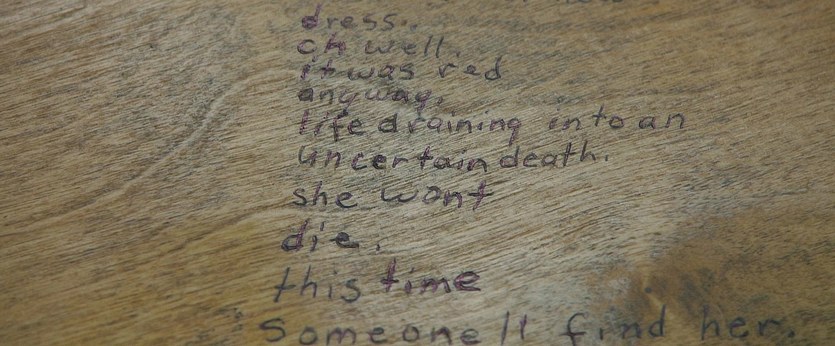 dress..
oh well.
it was red
anyway.
life draining into an
uncertain death.
she wont
die.
this time
someonell find her.